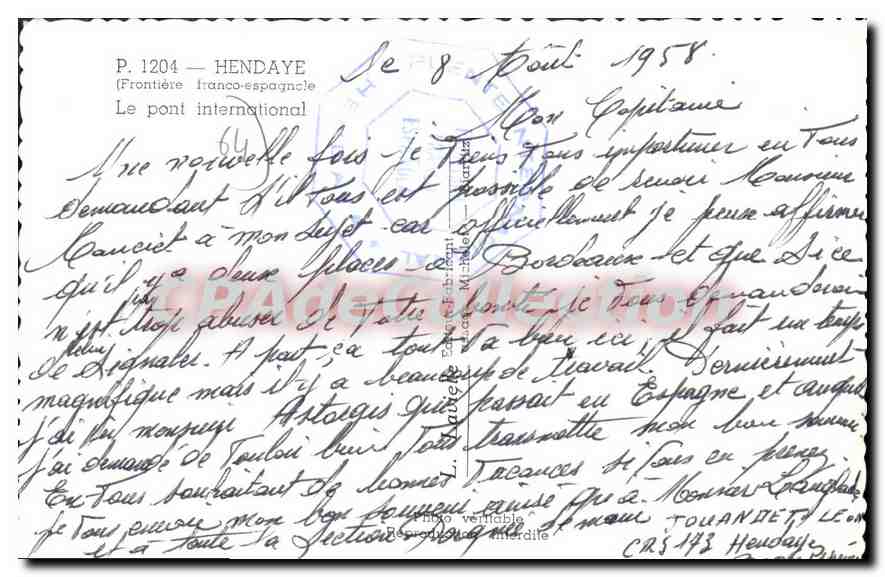 P. 1204 — HENDAYE
(Frontière franco-espagnole
Le pont international
64
Le 8 Août 1958.
Mon Capitaine
Une nouvelle fois je viens vous importuner en vous
demandant s'il vous est possible de revoir Monsieur
Manciet à mon sujet car officiellement je peux affirmer
qu'il y a deux places à Bordeaux et que si ce
n'est trop abuser de votre bonté je vous demanderai
de lui signaler. A part ça tout va bien ici, il fait un temps
magnifique mais il y a beaucoup de travail. Dernièrement
j'ai vu monsieur Astorgis qui passait en Espagne et auquel
j'ai demandé de vouloir bien vous transmettre mon bon souvenir
En vous souhaitant de bonnes vacances si vous en prenez.
je vous envoie mon bon souvenir ainsi que à Monsieur Langlade
et à toute la Section
JOUANDET LEON
CRS 173 Hendaye
L. Editeur-Fabricant
Photo véritable
Reproduction interdite
CPADeCollection